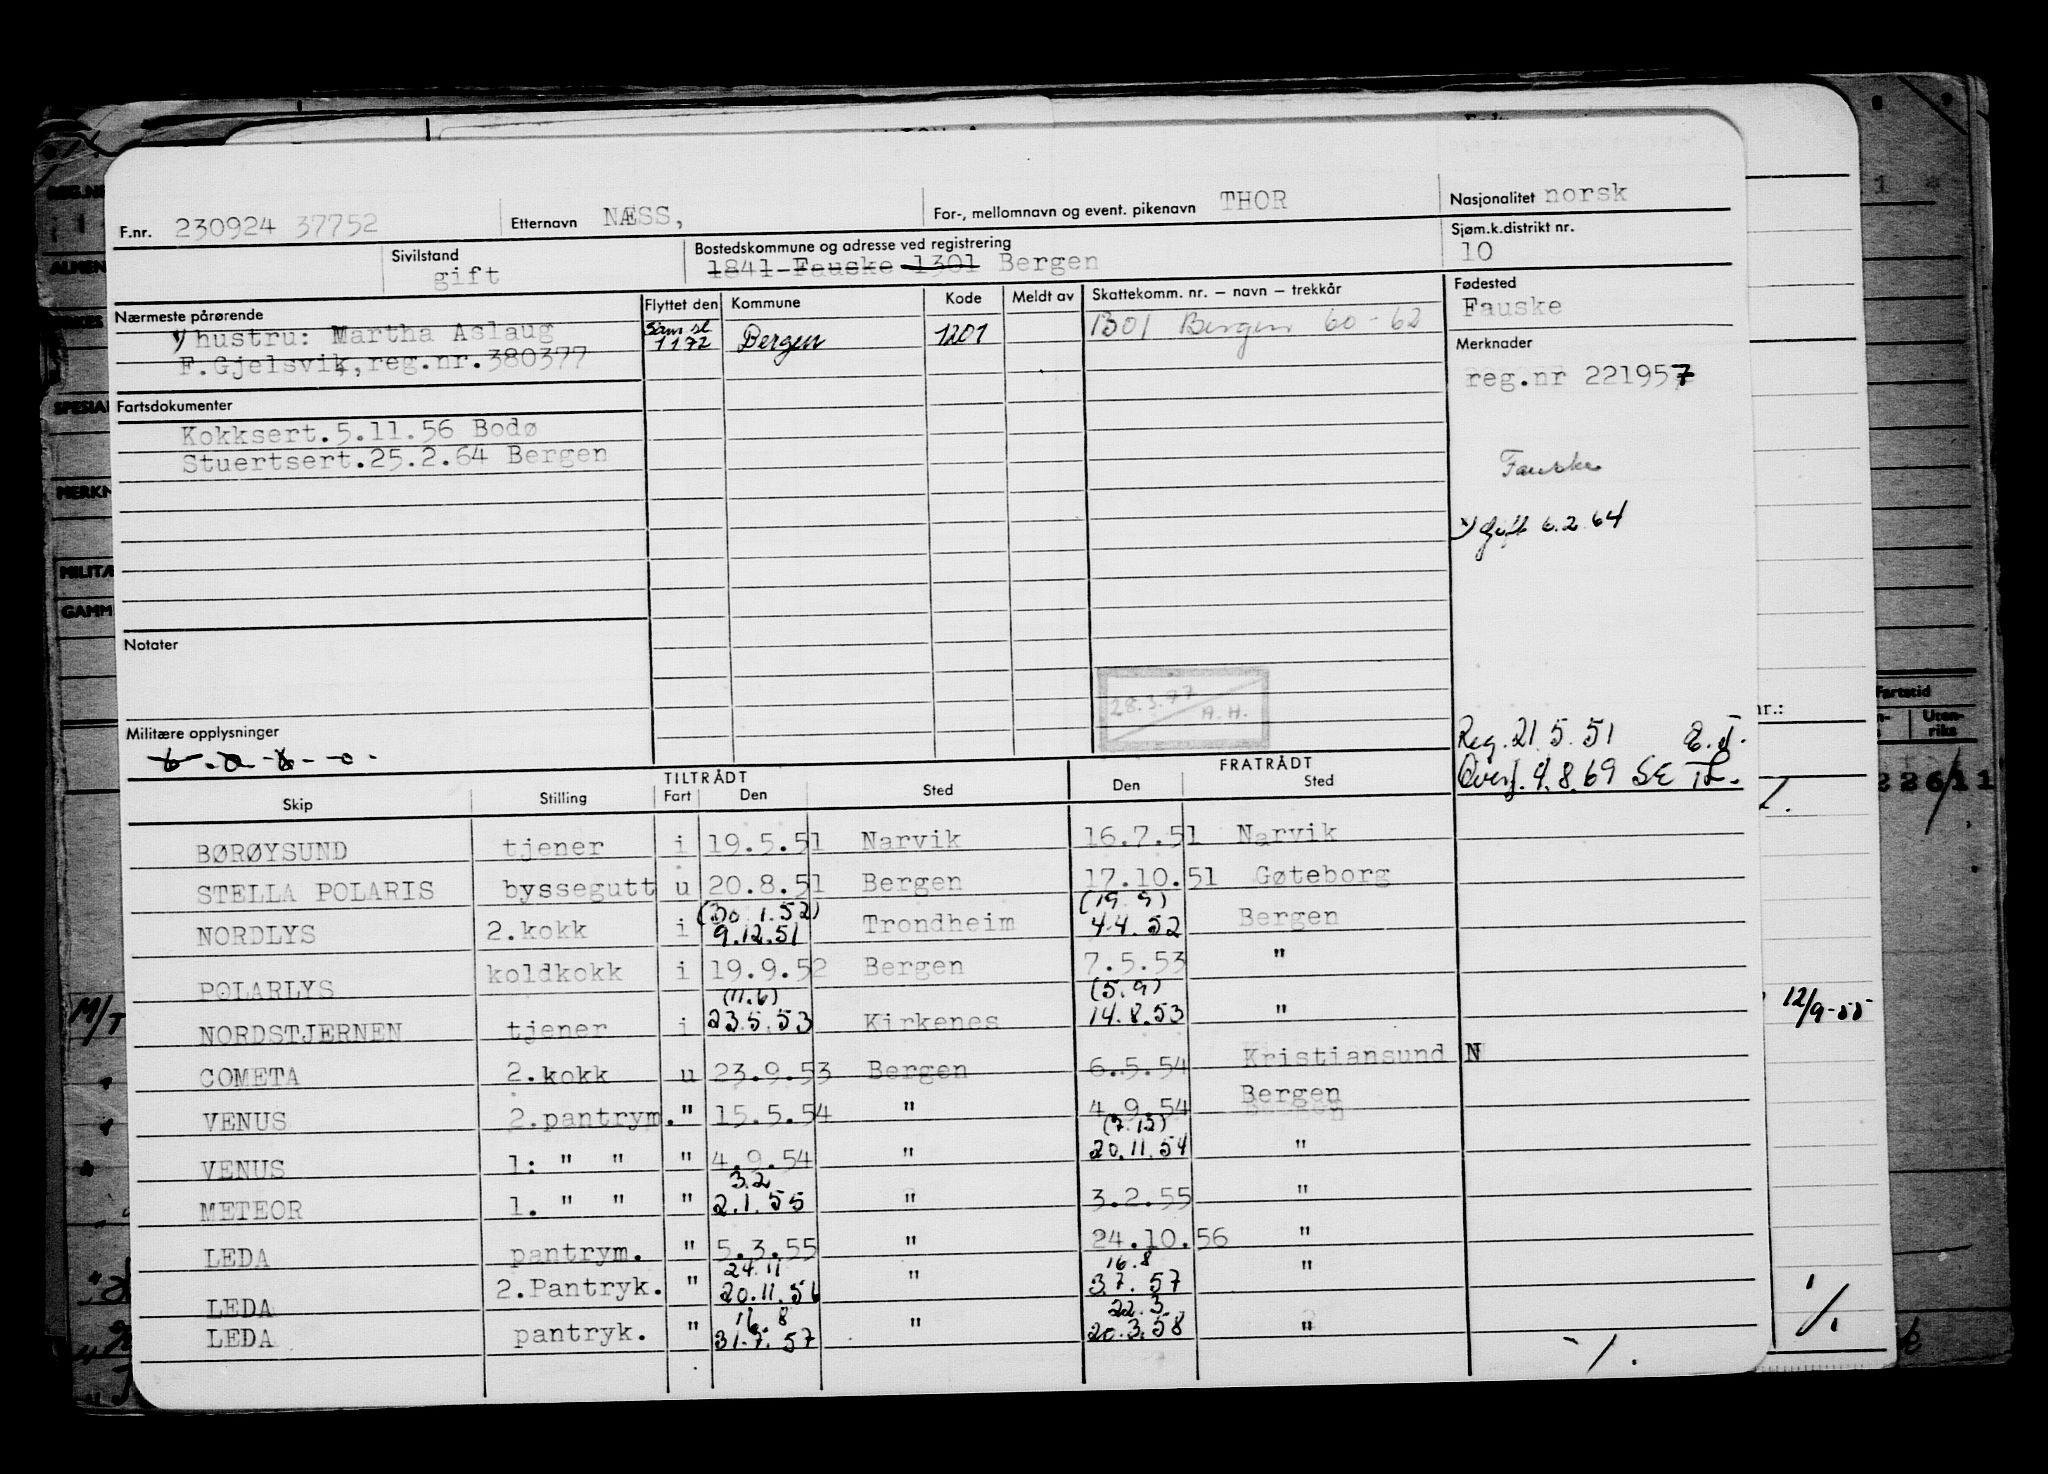 F.nr. 230924 37752 Etternavn NÆSS, For-, mellomnavn og event. pikenavn THOR Nasjonalitet norsk
Sivilstand gift Bostedskommune og adresse ved registrering 1841 Fauske 1301 Bergen Sjøm.k.distrikt nr. 10
Nærmeste pårørende Flyttet den Kommune Kode Meldt av Skattekomm. nr. – navn – trekkår Fødested
hustru: Martha Aslaug 1172 Bergen 1201 1301 Bergen 60-62 Fauske
F.Gjelsvik,reg.nr.380377 Merknader
reg.nr 221957
Fartsdokumenter
Kokksert.5.11.56 Bodø
Stuertsert.25.2.64 Bergen Fauske
gift 6.2.64
Notater
28.3.97
A.H.
Militære opplysninger
Reg. 21.5.51 E.J.
Overf. 4.8.69 SE
TILTRÅDT FRATRÅDT
Skip Stilling Fart Den Sted Den Sted
BØRØYSUND tjener i 19.5.51 Narvik 16.7.51 Narvik
STELLA POLARIS byssegutt u 20.8.51 Bergen 17.10.51 Gøteborg
(30.1.52) (19.9)
NORDLYS 2.kokk i 9.12.51 Trondheim 4.4.52 Bergen
POLARLYS koldkokk i 19.9.52 Bergen 7.5.53 "
(11.6) (5.9)
NORDSTJERNEN tjener i 23.5.53 Kirkenes 14.8.53 "
COMETA 2.kokk u 23.9.53 Bergen 6.5.54 Kristiansund N
VENUS 2.pantrym. " 15.5.54 " 4.9.54 Bergen
(7.12)
VENUS 1: " " " 4.9.54 " 20.11.54 "
3.2
METEOR 1. " " " 2.1.55 " 3.2.55 "
LEDA pantrym. " 5.3.55 " 24.10.56 "
24.11 16.8
LEDA 2.Pantryk. " 20.11.56 " 3.7.57 "
16.8 22.3
LEDA pantryk. " 31.7.57 " 20.3.58 "
Fartstid
Uten-
riks
226/11
nr.:
M/T
12/9-55